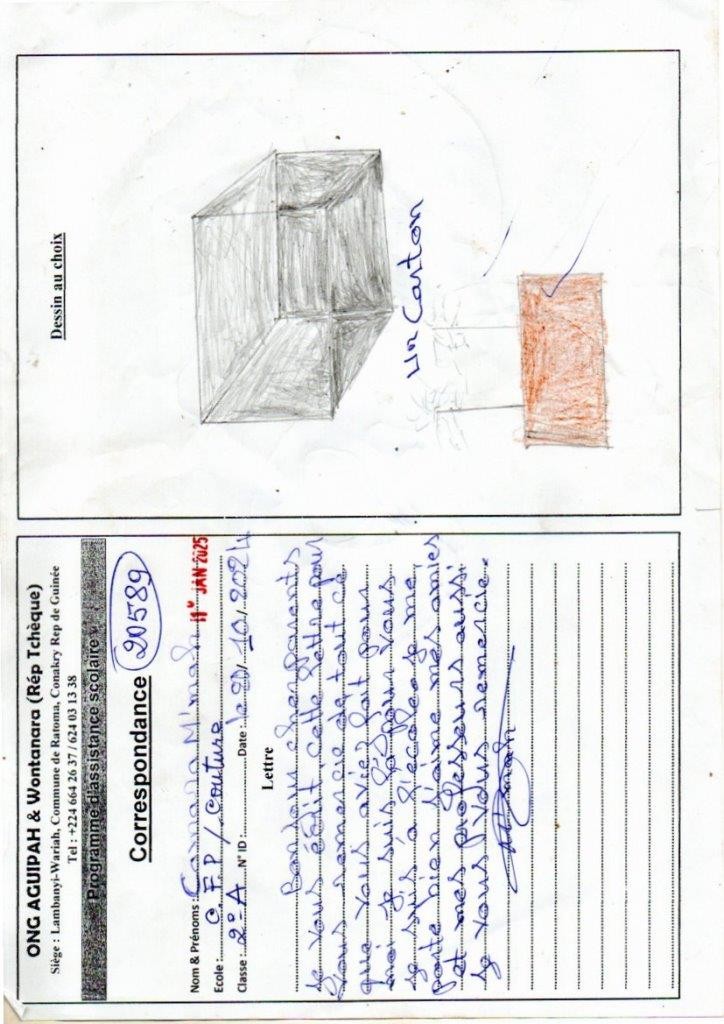 ONG AGUIPAH & Wontanara (Rép Tchèque)
Siège : Lambanyi-Wariah, Commune de Ratoma, Conakry Rep de Guinée
Tel : +224 664 26 37 / 624 03 13 38
Programme d'assistance scolaire
Correspondance 20589
Nom & Prénoms : Camara M'mah JAN 2025
Ecole : CFP / Couture
Classe : 2e A N° ID : Date : le 20/10/2024
Lettre
Bonjour cher parents
Je vous écrit cette lettre pour
vous remercie de tout ce
que vous aviez fait pour
moi Je suis pour vous
Je suis à l'école Je me
porte bien J'aime mes amies
et mes professeurs aussi
Je vous remercie.
M'mah
Dessin au choix
Un Carton